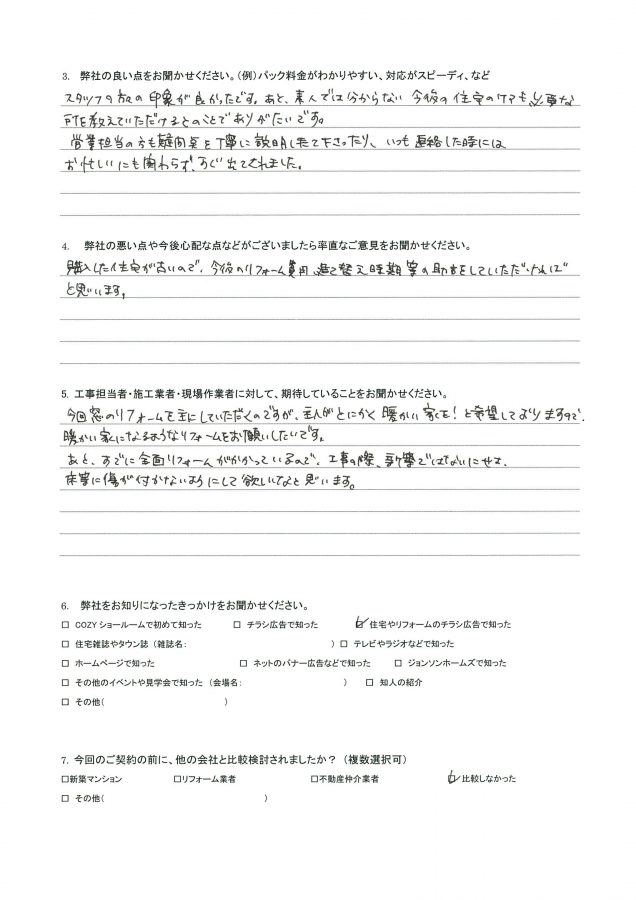 3. 弊社の良い点をお聞かせください。(例)パック料金がわかりやすい、対応がスピーディ、など
スタッフの方々の印象が良かったです。あと、素人では分からない今後の住宅のケアも必要な
所を教えていただけるとのことでありがたいです。
営業担当の方も疑問点を丁寧に説明して下さったり、いつも連絡した時には
お忙しいにも関わらず、すぐ出てくれました。
4. 弊社の悪い点や今後心配な点などがございましたら率直なご意見をお聞かせください。
購入した住宅が古いので、今後のリフォーム費用、建て替え時期等の助言をしていただければ
と思います。
5. 工事担当者・施工業者・現場作業者に対して、期待していることをお聞かせください。
今回窓のリフォームを主にしていただくのですが、主人がとにかく暖かい家を!と希望しておりますので、
暖かい家になるようなリフォームをお願いしたいです。
あと、すでに全面リフォームがかかっているので、工事の際、新築ではないにせよ、
床等に傷が付かないようにして欲しいなと思います。
6. 弊社をお知りになったきっかけをお聞かせください。
□ COZYショールームで初めて知った □ チラシ広告で知った ☑ 住宅やリフォームのチラシ広告で知った
□ 住宅雑誌やタウン誌 (雑誌名: ) □ テレビやラジオなどで知った
□ ホームページで知った □ ネットのバナー広告などで知った □ ジョンソンホームズで知った
□ その他のイベントや見学会で知った (会場名: ) □ 知人の紹介
□ その他( )
7. 今回のご契約の前に、他の会社と比較検討されましたか? (複数選択可)
□新築マンション □リフォーム業者 □不動産仲介業者 ☑比較しなかった
□ その他( )